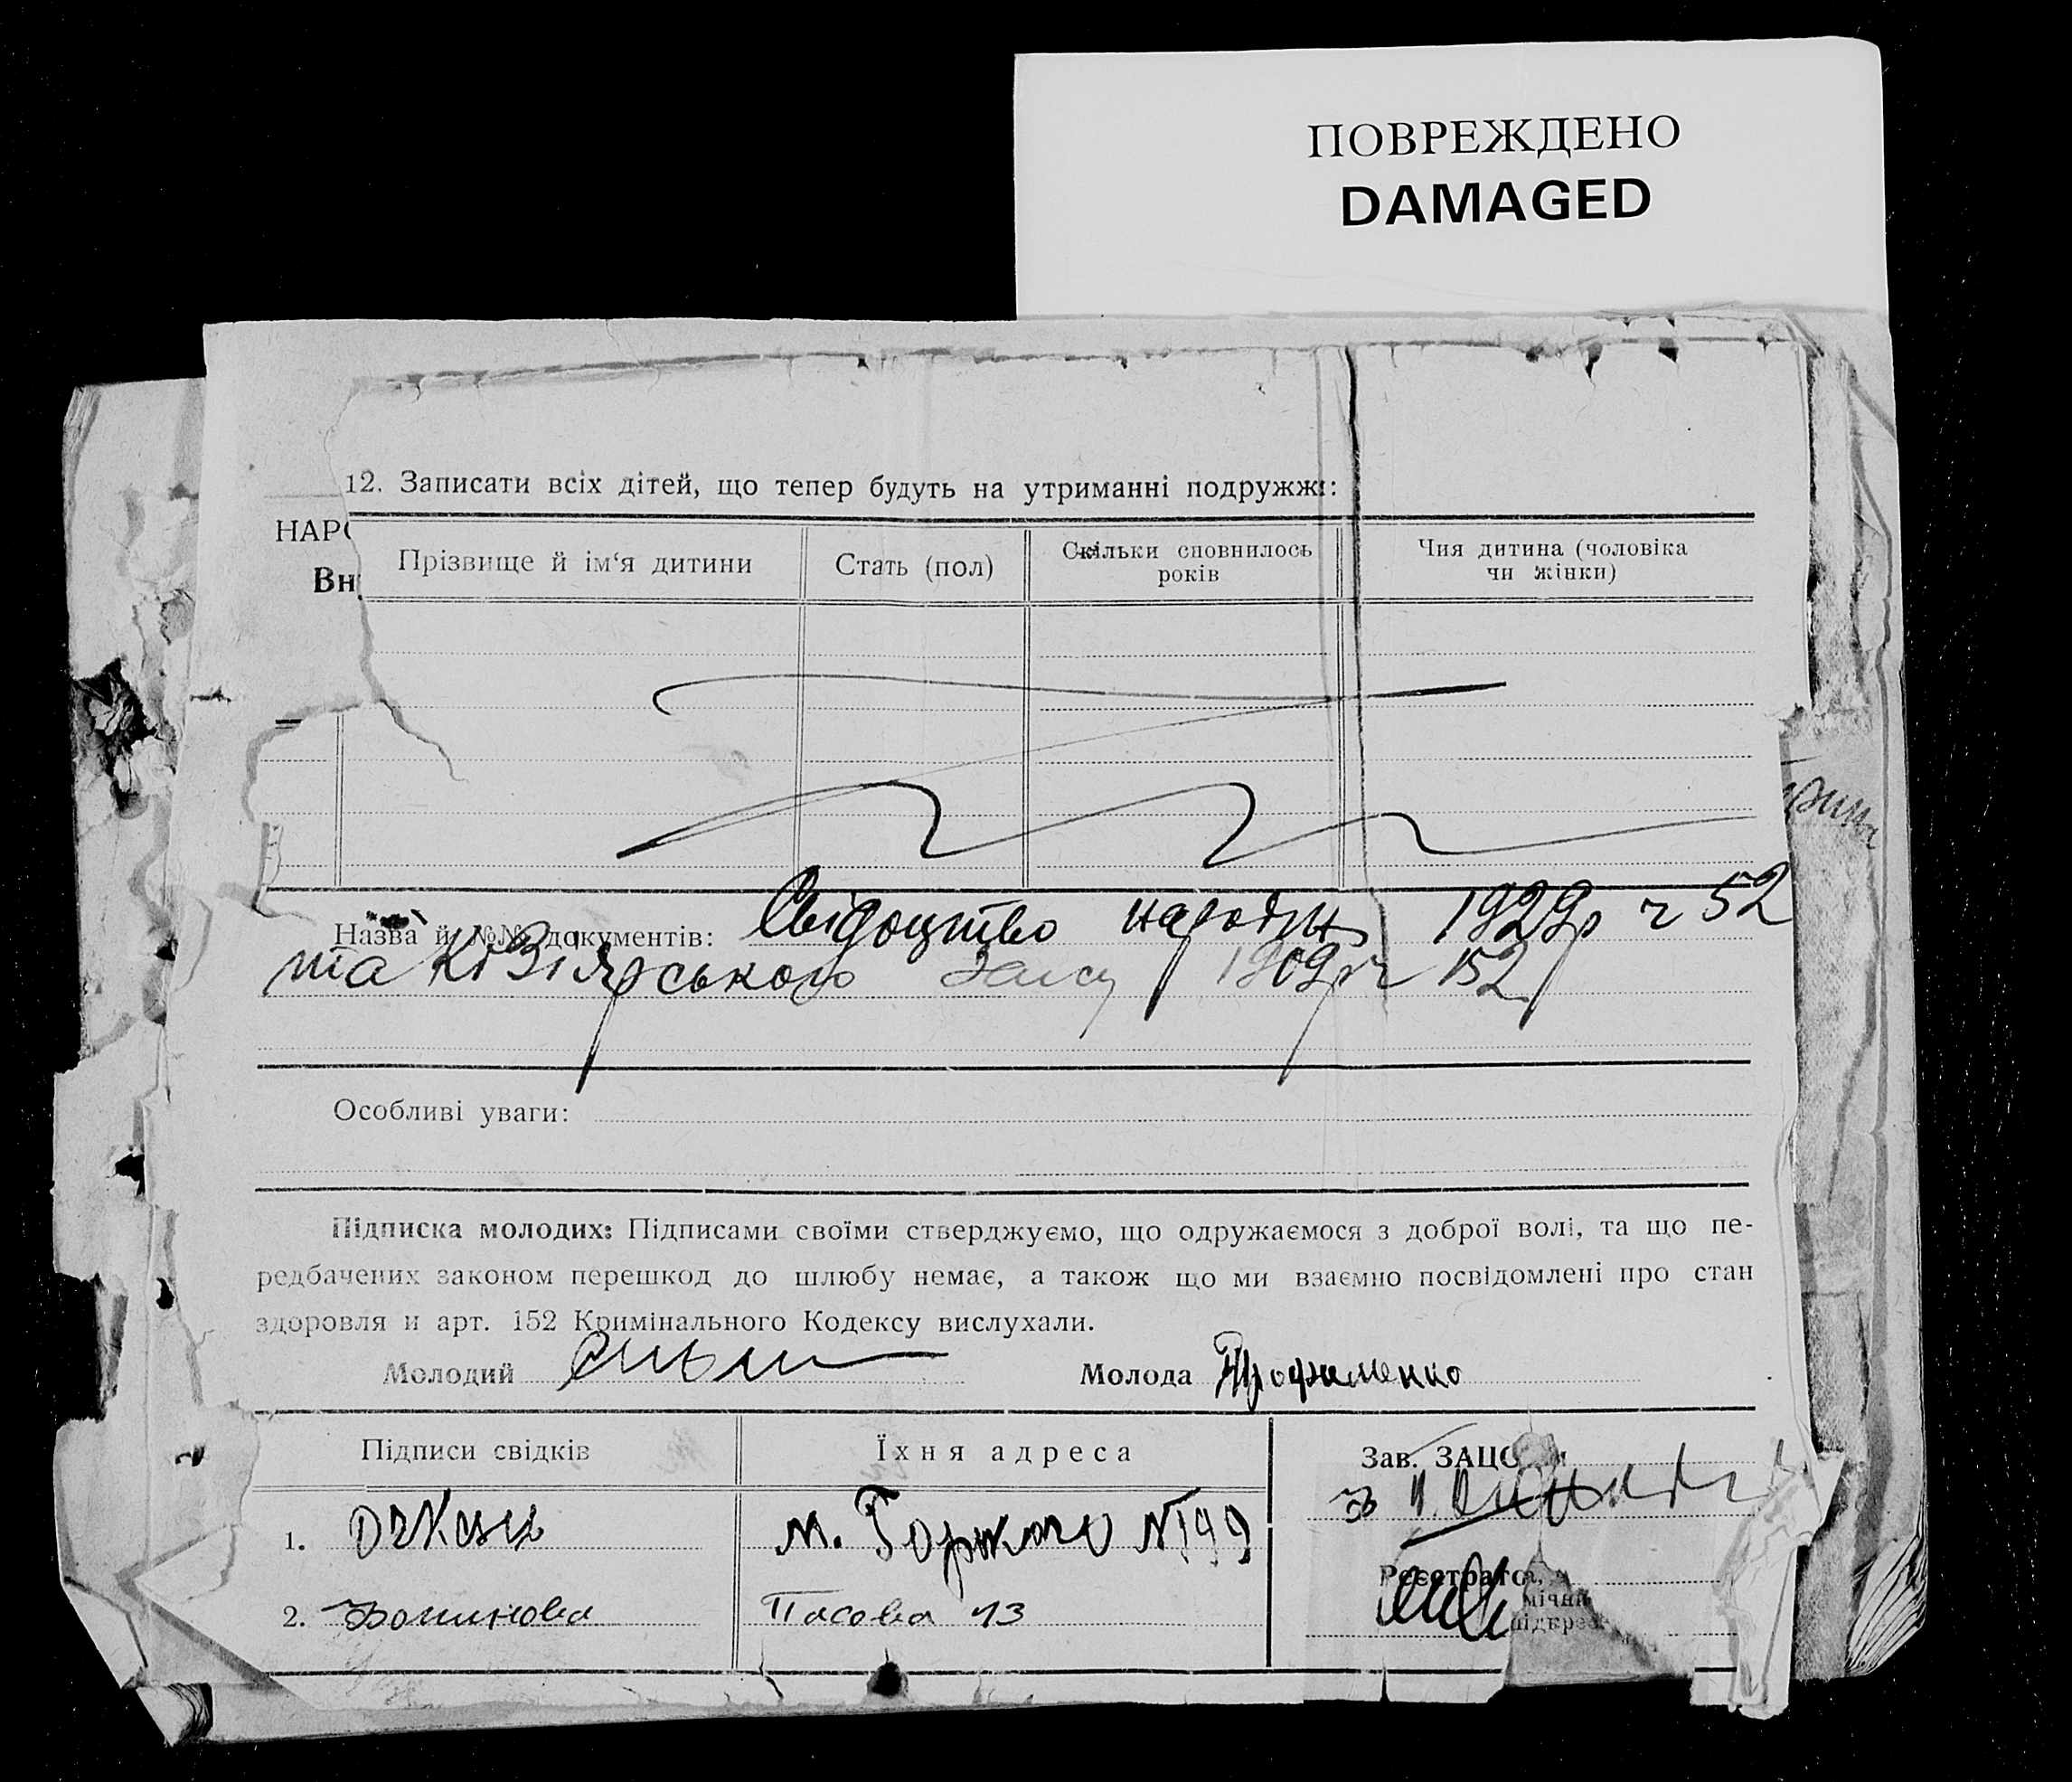 ПОВРЕЖДЕНО
DAMAGED
12. Записати всіх дітей, що тепер будуть на утриманні подружжі:
НАРО
Вн
Прізвище й ім‘я дитини
Стать (пол)
Скільки сповнилось
років
Чия дитина (чоловіка
чи жінки)
Назва й №№ документів: Свідоцтво народж 1929р ч 52
та 1909р ч 152
Особливі уваги:
Підписка молодих: Підписами своїми стверджуємо, що одружаємося з доброї волі, та що пе-
редбачених законом перешкод до шлюбу немає, а також що ми взаємно посвідомлені про стан
здоровля й арт. 152 Кримінального Кодексу вислухали.
Молодий
Молода Трофименко
Підписи свідків
Їхня адреса
Зав. ЗАЦС
1.
м. Горького №99
Реєстрато
2.
Пасова 13
мічни
підкрес